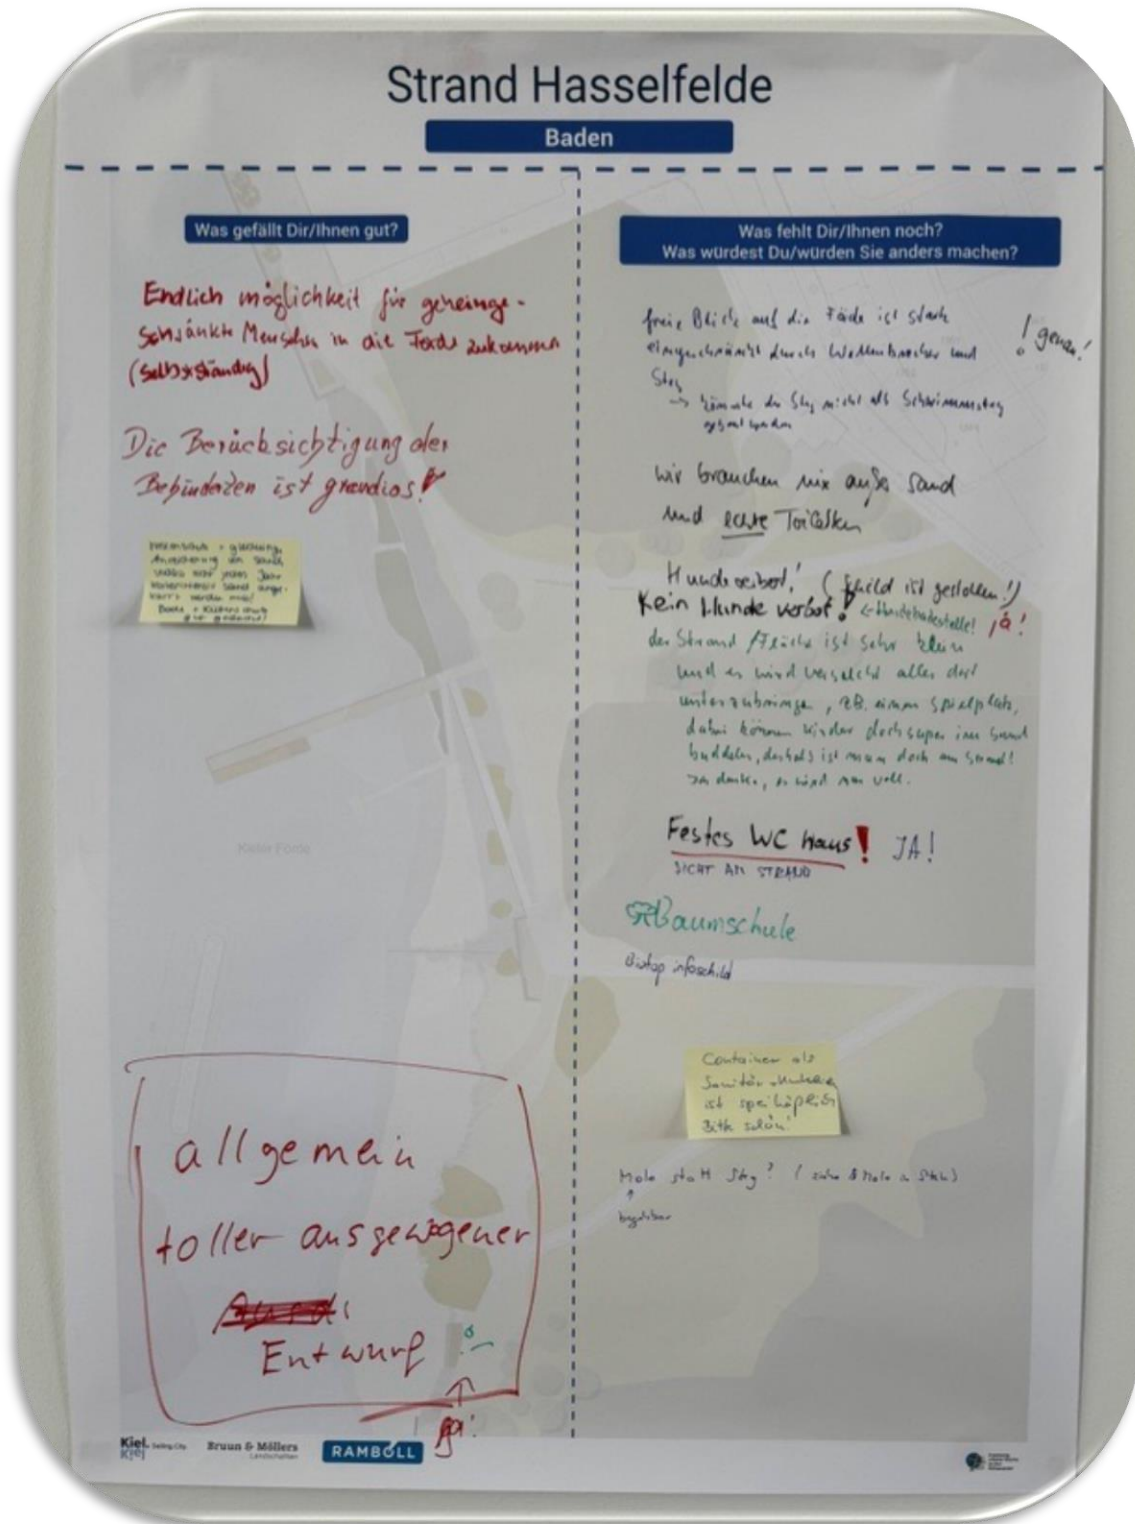 Strand Hasselfelde
Baden
Was gefällt Dir/Ihnen gut?
Endlich möglichkeit für geheinge-
schränkte Menschen in die Förde zukommen
(selbstständig)
Die Berücksichtigung der
Behinderten ist grandios!
allgemein
toller ausgewogener
Entwurf
ja!
Was fehlt Dir/Ihnen noch?
Was würdest Du/würden Sie anders machen?
freie Blick auf die Förde ist stark
eingeschränkt durch Wellenbrecher und
Steg
→ könnte der Steg nicht als Schwimmsteg
gebaut werden
! genau!
wir brauchen nix außer Sand
und echte Toiletten
Hundeverbot! (Schild ist gestohlen!)
Kein Hunde verbot! ← Hundebadestelle! ja!
der Strand / Fläche ist sehr klein
und es wird versucht alles dort
unterzubringen, zB. einen Spielplatz,
dabei können Kinder doch super im Sand
buddeln, deshalb ist man doch am Strand!
Ich denke, es wird zu voll.
Festes WC Haus! JA!
NICHT AM STRAND
Baumschule
Biotop infoschild
Container als
Sanitär
ist
Bitte schön!
Mole statt Steg? (siehe
begehbar
Kieler Förde
Kiel. Sailing City
Kiel
Bruun & Möllers
Landschaften
RAMBOLL